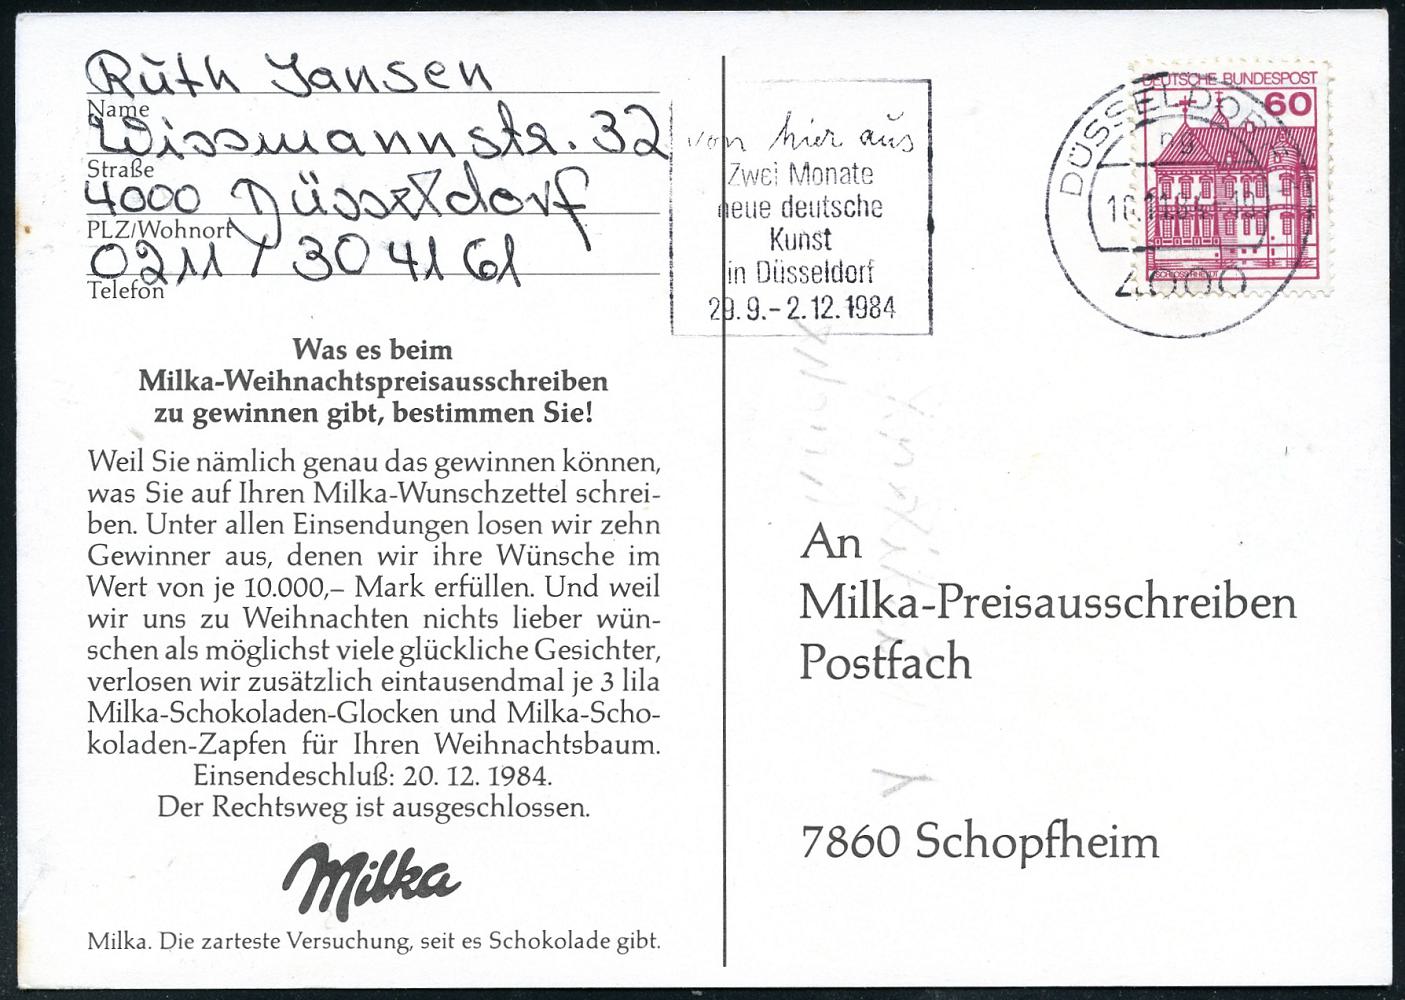 Ruth Jansen
Name
Wissmannstr. 32
Straße
4000 Düsseldorf
PLZ/Wohnort
0211 / 30 41 61
Telefon
Was es beim
Milka-Weihnachtspreisausschreiben
zu gewinnen gibt, bestimmen Sie!
Weil Sie nämlich genau das gewinnen können,
was Sie auf Ihren Milka-Wunschzettel schrei-
ben. Unter allen Einsendungen losen wir zehn
Gewinner aus, denen wir ihre Wünsche im
Wert von je 10.000,– Mark erfüllen. Und weil
wir uns zu Weihnachten nichts lieber wün-
schen als möglichst viele glückliche Gesichter,
verlosen wir zusätzlich eintausendmal je 3 lila
Milka-Schokoladen-Glocken und Milka-Scho-
koladen-Zapfen für Ihren Weihnachtsbaum.
Einsendeschluß: 20. 12. 1984.
Der Rechtsweg ist ausgeschlossen.
Milka
Milka. Die zarteste Versuchung, seit es Schokolade gibt.
von hier aus
Zwei Monate
neue deutsche
Kunst
in Düsseldorf
29.9.–2.12.1984
DÜSSELDORF
4000
DEUTSCHE BUNDESPOST
60
SCHLOSS RHEYDT
An
Milka-Preisausschreiben
Postfach
7860 Schopfheim